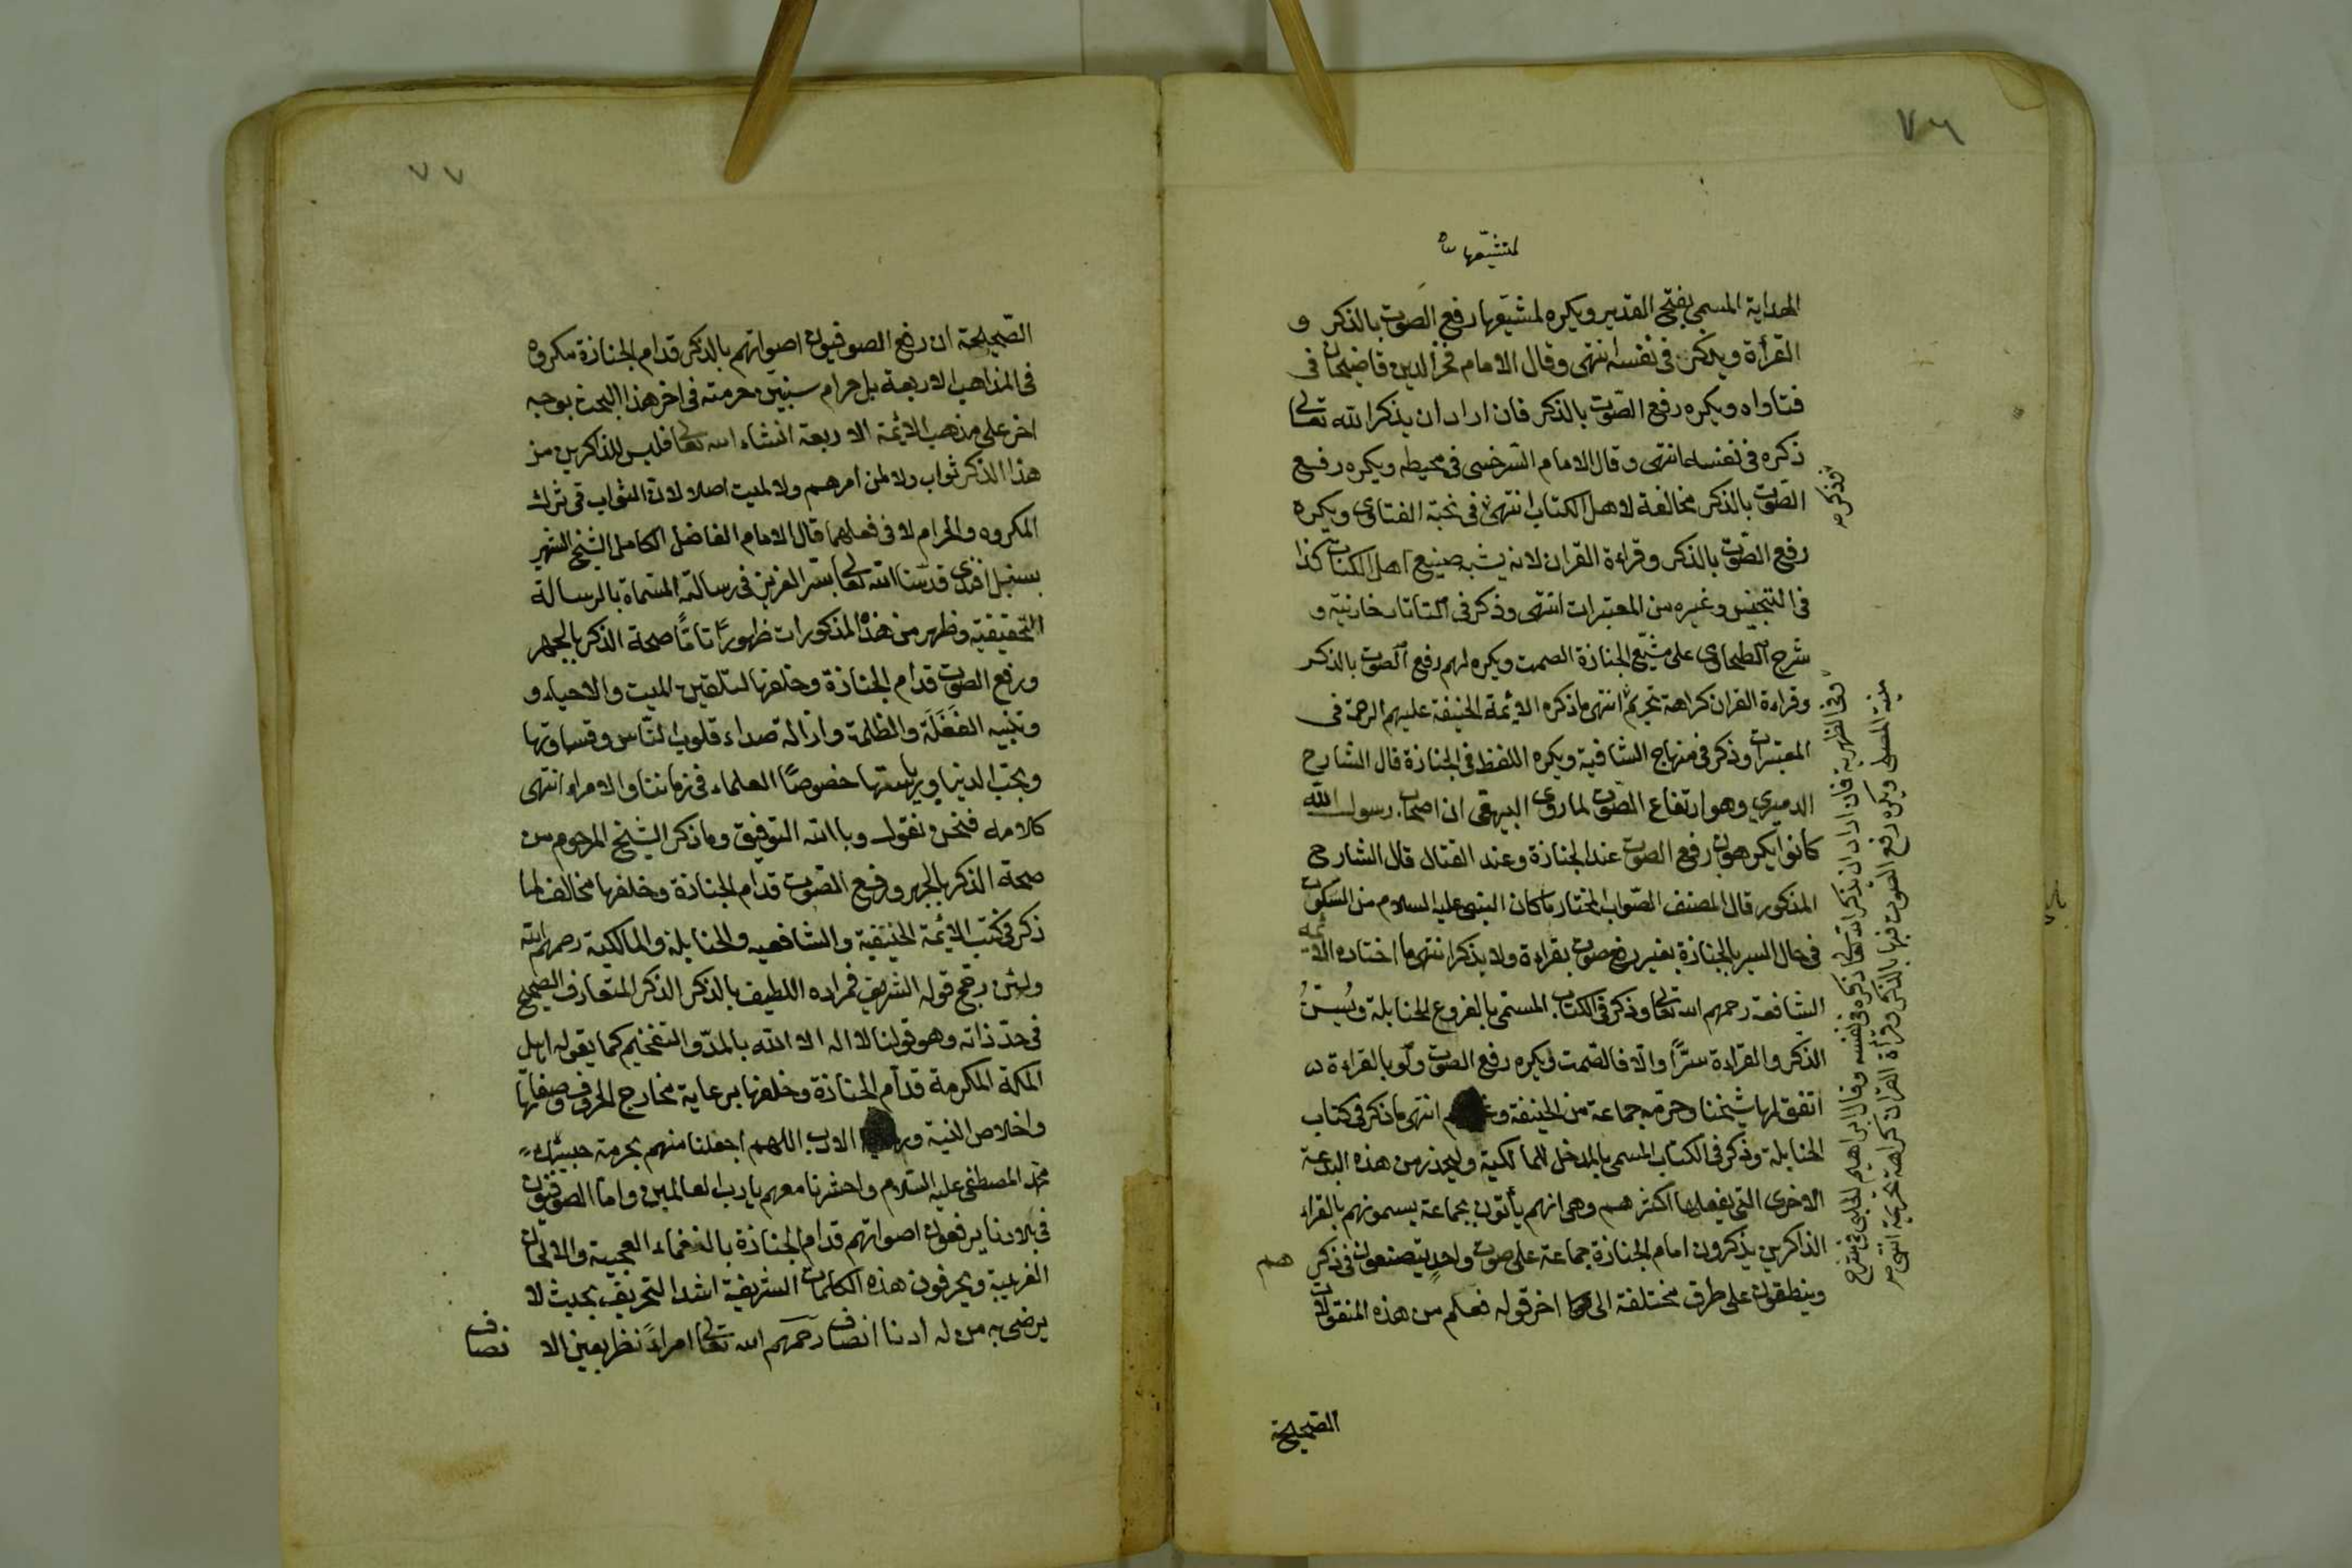 ٧٦
لمتشيّعها
الهداية المسمى بفتح القدير ويكره لمشيّعها رفع الصوت بالذكر و
القرأة ويذكر في نفسه انتهى وقال الامام فخر الدين قاضيخان في
فتاواه ويكره رفع الصّوت بالذكر فان اراد ان يذكر الله تعالى
ذكره في نفسه انتهى وقال الامام السّرخسى في محيطه ويكره رفع
الصّوت بالذكر مخالفة لاهل الكتاب انتهى في نخبة الفتاوى ويكره
رفع الصّوت بالذكر وقراءة القران لانه يشبه صنيع اهل الكتاب كذا
في التجنيس وغيره من المعتبرات انتهى وذكر في التاتارخانية و
شرح الطحاوى على مشيّع الجنازة الصمت ويكره لهم رفع الصوت بالذكر
وقراءة القران كراهة تحريم انتهى ماذكره الائمة الحنيفة عليهم الرحمة في
المعتبرات وذكر في منهاج الشافية ويكره اللفظ في الجنازة قال الشارح
الدميري وهو ارتفاع الصّوت لما روى البيهقى ان اصحاب رسول الله
كانوا يكرهون رفع الصوت عند الجنازة وعند القتال قال الشارح
المذكور قال المصنف الصّواب المختار ما كان النبى عليه السلام من السّكوت
في حال السير بالجنازة بغير رفع صوت بقراءة ولا بذكر انتهى ما اختاره الائمة
الشافعة رحمهم الله تعالى وذكر في الكتاب المسمى بالفروع لحنابلة ويُسَنُّ
الذكر والقراءة سرًّا والا فالصّمت ويكره رفع الصوت ولو بالقراءة
اتفق لها شيخنا وحرّمه جماعة من الحنيفة انتهى ماذكر في كتاب
الحنابلة وذكر في الكتاب المسمى بالمدخل للمالكية وليحذر من هذه البدعة
الاخرى التى يفعلها اكثرهم وهى انهم يأتون بجماعة يسمونهم بالقراء
الذاكرين يذكرون امام الجنازة جماعة على صوت واحدٍ يتصنعون في ذكر هم
وينطقون على طرق مختلفة الى اخر قوله فعلم من هذه المنقولات
وذكره
وفى الظهرية فان اراد ان يذكر الله تعالى ذكره في نفسه وقال ابراهيم الحلبى في شرح
منية المصلى ويكره رفع الصوت فيها بالذكر وقرأة القران كراهة تحريمية انتهى
الصّحيحة
٧٧
الصّحيحة ان رفع الصوفيون اصواتهم بالذكر قدام الجنازة مكروه
في المذاهب الاربعة بل حرام سنبين حرمته في اخر هذا البحث بوجه
اخر على مذهب الائمة الاربعة انشاء الله تعالى فليس للذاكرين من
هذا الذكر ثواب ولا لمن امرهم ولا لميت اصلا لان الثواب في ترك
المكروه والحرام لا في فعلهما قال الامام الفاضل الكامل الشيخ الشهير
بسنبل افندى قدسنا الله تعالى بسره العزيز في رسالته المسّماة بالرسالة
التحقيقية وظهر من هذه المذكورات ظهورًا تامًا صحة الذكر بالجهر
ورفع الصوت قدام الجنازة وخلفها لتلقين الميت والاحياء و
وتنبيه الغَفَلَة والظلمة وازالة صداء قلوب النّاس وقساوتها
وبحبّ الدنيا ورياستها خصوصًا العلماء في زماننا والامراء انتهى
كلامه فنحن نقول وبا الله التوفيق وماذكر الشيخ المرحوم من
صحة الذكر بالجهر ورفع الصوت قدام الجنازة وخلفها مخالف لما
ذكر في كتب الائمة الحنيفية والشافعيه والحنابلة والمالكية رحمهم الله
ولئن رجّح قوله الشريف فمراده اللطيف بالذكر الذكر المتعارف الصحيح
في حدّ ذاته وهو قولنا لا اله الا الله بالمدّ والتفخيم كما يقوله اهل
المكة المكرمة قدام الجنازة وخلفها برعاية مخارج الحروف وصفاتها
واخلاص النية الادب اللهم اجعلنا منهم بحرمة حبيبك
محمّد المصطفى عليه السّلام واحشرنا معهم يا رب العالمين وامّا الصوفيّون
في بلادنا يرفعون اصواتهم قدام الجنازة بالنغماء العجيبة والالحان
الغريبة ويحرفون هذه الكلمات الشريفة اشد التحريف بحيث لا
يرضى به من له ادنا انصاف رحمهم الله تعالى امراءً نظر بعين الا
نصاف